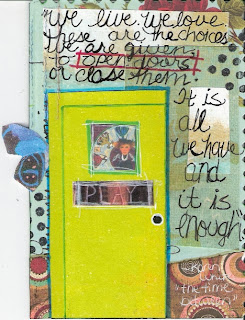 "We live. We love.
these are the choices
We are given.
to open doors
or close them.
It is
all
we have
and
it is
enough"
PLAY
"the time
between"